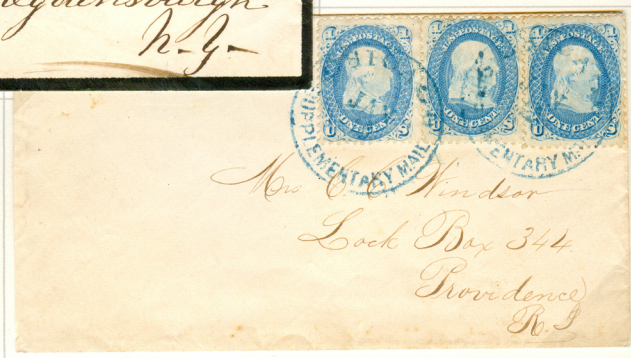 N-Y-
U.S. POSTAGE
ONE CENT
U.S. POSTAGE
ONE CENT
U.S. POSTAGE
ONE CENT
SUPPLEMENTARY MAIL
MENTARY MAIL
Mrs C. C. Windsor
Lock Box 344
Providence
R. I